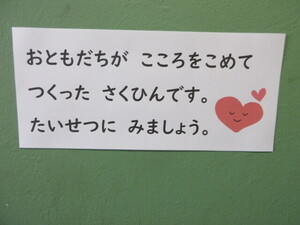 おともだちが こころをこめて
つくった さくひんです。
たいせつに みましょう。